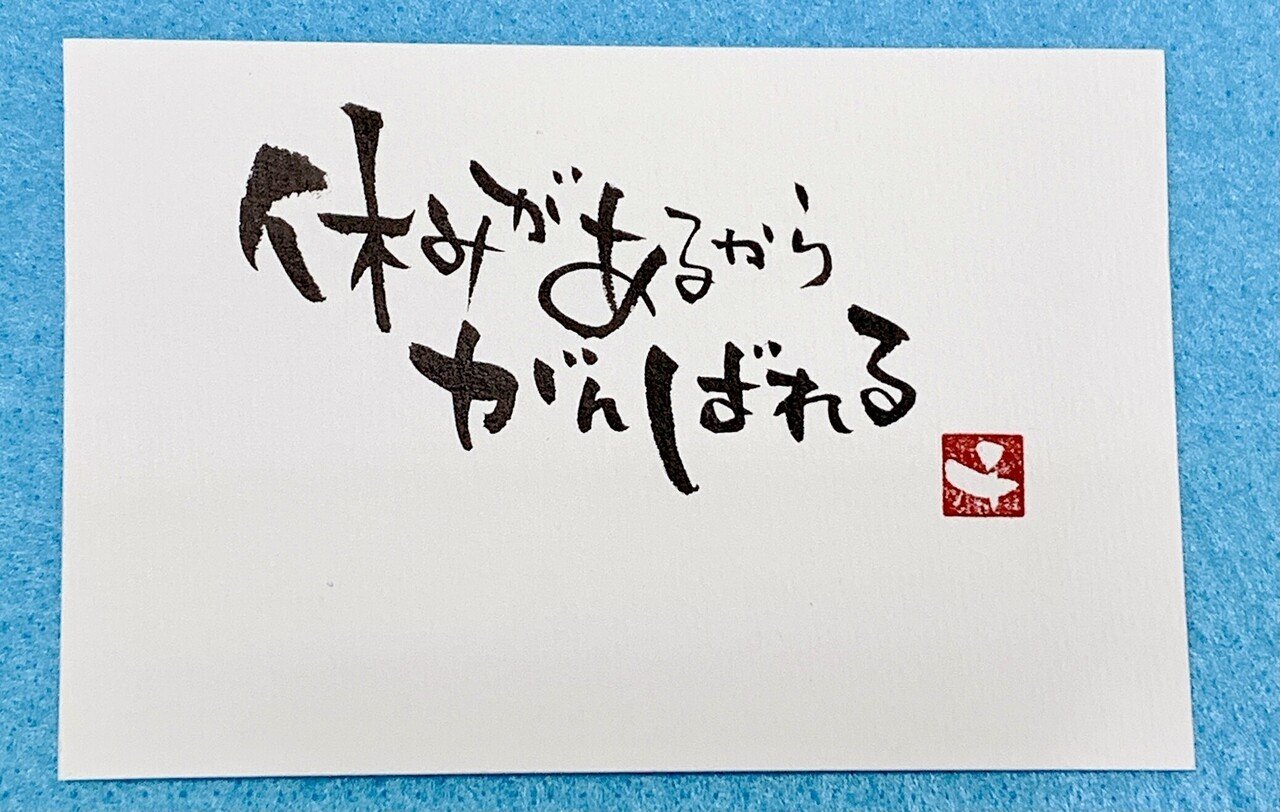 休みがあるから
がんばれる